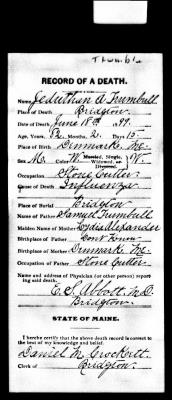 Trumble
RECORD OF A DEATH.
Name, Jeduthan A Trumbull
Place of Death, Bridgton
Date of Death, June 18th 1899.
Age, Years, 82 Months, 2. Days 15-
Place of Birth, Denmark, Me.
Sex M. Color W. Married, Single, Widowed, or Divorced, W.
Occupation Stone Cutter
Cause of Death, Influenza
Place of Burial Bridgton
Name of Father Samuel Trumbull
Maiden Name of Mother Lydia Alexander
Birthplace of Father Dont Know
Birthplace of Mother Denmark, Me.
Occupation of Father Stone Cutter
Name and address of Physician (or other person) reporting said death,
E. S. Abbott, M.D.
Bridgton.
STATE OF MAINE.
I hereby certify that the above death record is correct to the best of my knowledge and belief.
Daniel M.
Clerk of Bridgton.